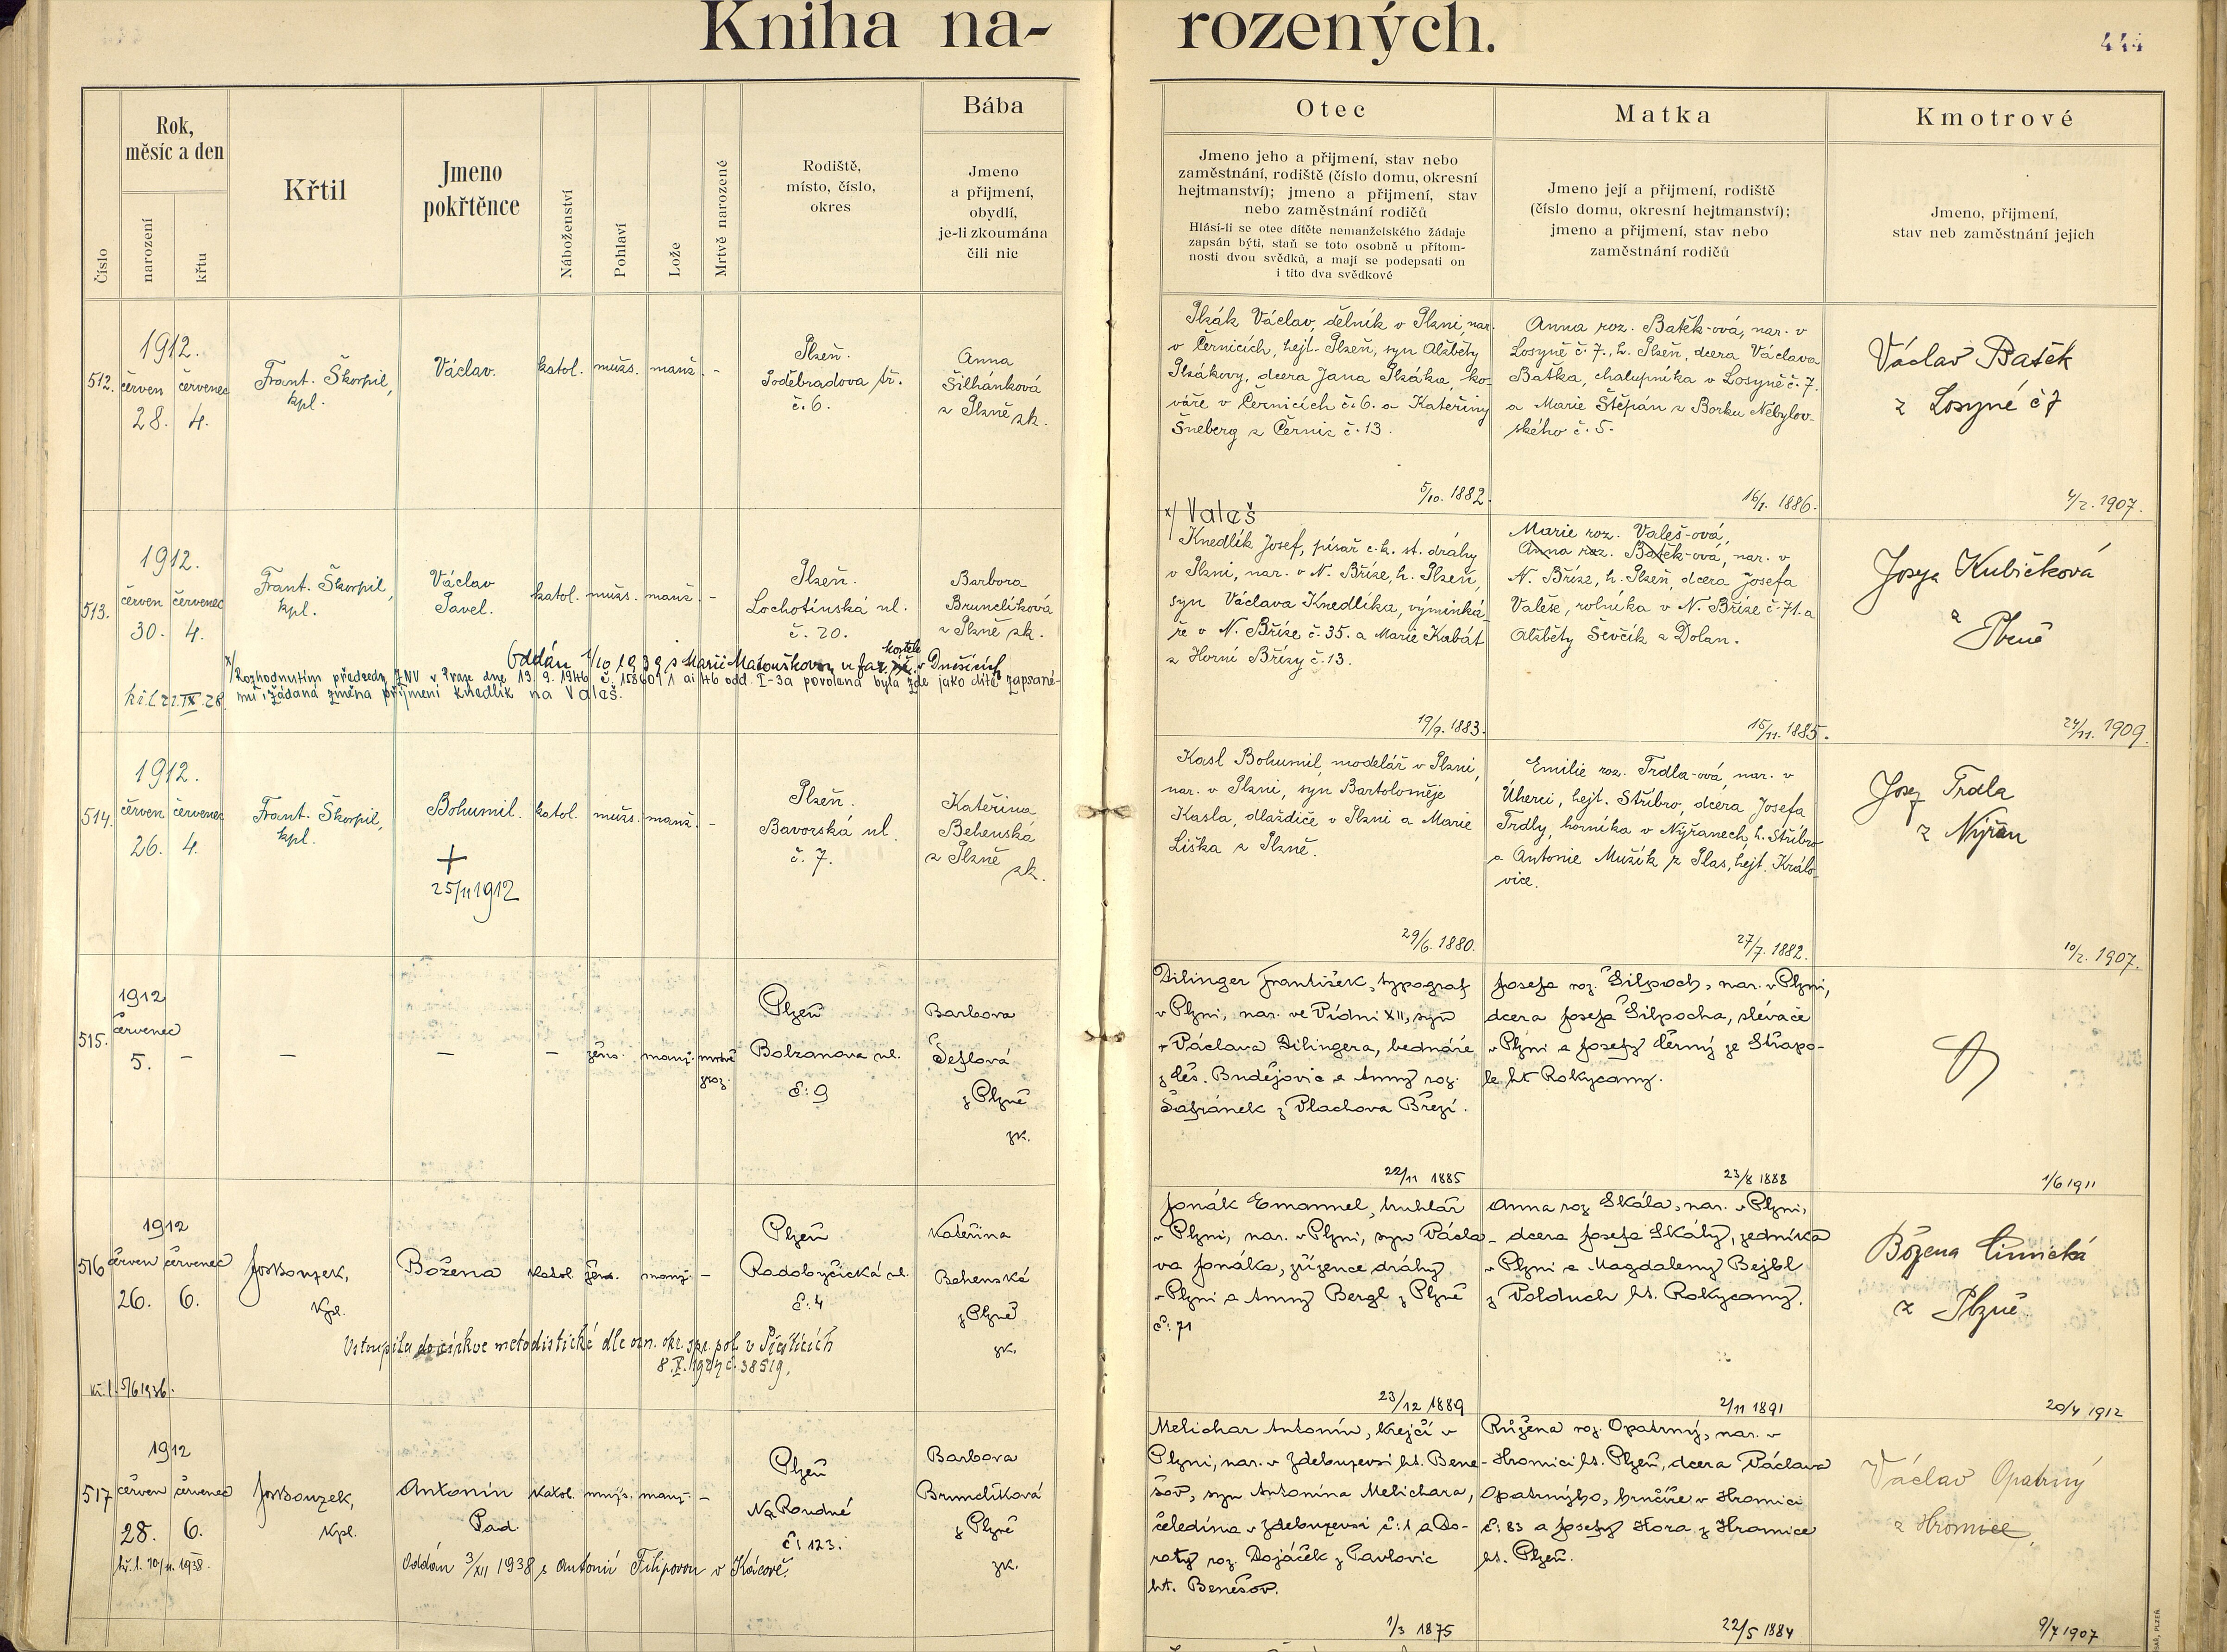 Kniha narozených.
444
Číslo
Rok, měsíc a den
narození
křtu
Křtil
Jmeno pokřtěnce
Náboženství
Pohlaví
Lože
Mrtvě narozené
Rodiště, místo, číslo, okres
Bába
Jmeno
a přijmení,
obydlí,
je-li zkoumána
čili nic
Otec
Jmeno jeho a přijmení, stav nebo
zaměstnání, rodiště (číslo domu, okresní
hejtmanství); jmeno a přijmení, stav
nebo zaměstnání rodičů
Hlásí-li se otec dítěte nemanželského žádaje
zapsán býti, staň se toto osobně u přítom-
nosti dvou svědků, a mají se podepsati on
i tito dva svědkové
Matka
Jmeno její a přijmení, rodiště
(číslo domu, okresní hejtmanství);
jmeno a přijmení, stav nebo
zaměstnání rodičů
Kmotrové
Jmeno, přijmení,
stav neb zaměstnání jejich
512.
1912.
červen červenec
28. 4.
Frant. Škorpil,
kpl.
Václav.
katol. mužs. manž. -
Plzeň.
Poděbradova tř.
č. 6.
Anna
Šilhánková
z Plzně zk.
Plzák Václav, dělník v Plzni, nar.
v Černicích, hejt. Plzeň, syn Alžběty
Plzákovy, dcera Jana Plzáka, ko-
váře v Černicích č. 6. a Kateřiny
Šneberg z Černic č. 13.
5/10. 1882.
Anna roz. Batěk-ová, nar. v
Losyně č. 7., h. Plzeň, dcera Václava
Baťka, chalupníka v Losyně č. 7.
a Marie Štěpán z Borku Nebylov-
ského č. 5.
16/7. 1886.
Václav Batěk
z Losyné č 7
4/2. 1907.
513.
1912.
červen červenec
30. 4.
Frant. Škorpil,
kpl.
Václav
Pavel.
katol. mužs. manž. -
Plzeň.
Lochotínská ul.
č. 20.
Barbora
Brunclíková
z Plzně zk.
Oddán 1/10 1939 s Marií Matouškovou ve far. kostele v Dnešicích
x/ Rozhodnutím předsedy ZNV v Praze dne 13. 9. 1946 č. I-3a povolena byla zde jako dítě zapsané-
mu žádaná změna příjmení Knedlík na Valeš.
kř. l. 22. IX. 28.
x/ Valeš
Knedlík Josef, písař c. k. st. dráhy
v Plzni, nar. v N. Bříze, h. Plzeň,
syn Václava Knedlíka, výminká-
ře v N. Bříze č. 35. a Marie Kabát
z Horní Břízy č. 13.
19/9. 1883.
Marie roz. Valeš-ová,
Anna roz. Batěk-ová, nar. v
N. Bříze, h. Plzeň, dcera Josefa
Valeše, rolníka v N. Bříze č. 71. a
Alžběty Ševčík z Dolan.
15/11. 1885.
Josefa Kubičková
z Plzně
24/11. 1909.
514.
1912.
červen červenec
26. 4.
Frant. Škorpil,
kpl.
Bohumil.
+
25/11 1912
katol. mužs. manž. -
Plzeň.
Bavorská ul.
č. 7.
Kateřina
Behenská
z Plzně
zk.
Kasl Bohumil, modelář v Plzni,
nar. v Plzni, syn Bartoloměje
Kasla, dlaždiče v Plzni a Marie
Liška z Plzně.
29/6. 1880.
Emilie roz. Trdla-ová, nar. v
Úherci, hejt. Stříbro, dcera Josefa
Trdly, horníka v Nýřanech, h. Stříbro
a Antonie Mužík z Plas, hejt. Králo-
vice.
27/7. 1882.
Josef Trdla
z Nýřan
10/2. 1907.
515.
1912
červenec
5. -
-
-
- žens. manž. mrtvě
roz.
Plzeň
Bolzanova ul.
č: 9
Barbora
Šeflová
z Plzně
zk.
Dilinger František, typograf
v Plzni, nar. ve Vídni XII, syn
Václava Dilingera, bednáře
z Čes. Budějovic a Anny roz.
Šafránek z Vlachova Březí.
22/11 1885
Josefa roz. Šilpoch, nar. v Plzni,
dcera Josefa Šilpocha, slévače
v Plzni a Josefy Černý ze Střapo-
le ht Rokycany.
23/8 1888
1/6 1911
516
1912
červen červenec
26. 6.
Jos. Bouzek,
Kpl.
Božena
katol. žens. manž. -
Plzeň
Radobyčická ul.
č: 4
Kateřina
Behenská
z Plzně
zk.
Vstoupila do církve metodistické dle ozn. okr. spr. pol. v Přešticích
8. X. 1927 č. 38519.
kř. l. 5/6 1936.
Jonák Emanuel, truhlář
v Plzni, nar. v Plzni, syn Václa-
va Jonáka, zřízence dráhy
v Plzni a Anny Bergl z Plzně
č: 71
23/12 1889
Anna roz Skála, nar. v Plzni,
dcera Josefa Skály, zedníka
v Plzni a Magdaleny Bejbl
z Volduch ht. Rokycany.
2/11 1891
Božena
z Plzně
20/4 1912
517
1912
červen červenec
28. 6.
kř. l. 10/11. 1938.
Jos. Bouzek,
Kpl.
Antonín
Pad.
katol. mužs. manž. -
Plzeň
Na Roudné
č: 123.
Barbora
Brunclíková
z Plzně
zk.
Oddán 3/XII 1938 s Antonií Filipovou v Kácově.
Melichar Antonín, krejčí v
Plzni, nar. v Zdebuzevsi ht. Bene-
šov, syn Antonína Melichara,
čeledína v Zdebuzevsi č: 1 a Do-
roty roz. Dojáček z Pavlovic
ht. Benešov.
1/3 1875
Růžena roz. Opatrný, nar. v
Hromici ht. Plzeň, dcera Václava
Opatrného, hrnčíře v Hromici
č: 83 a Josefy Hora z Hromice
ht. Plzeň.
22/5 1884
Václav Opatrný
z Hromice
9/7 1907